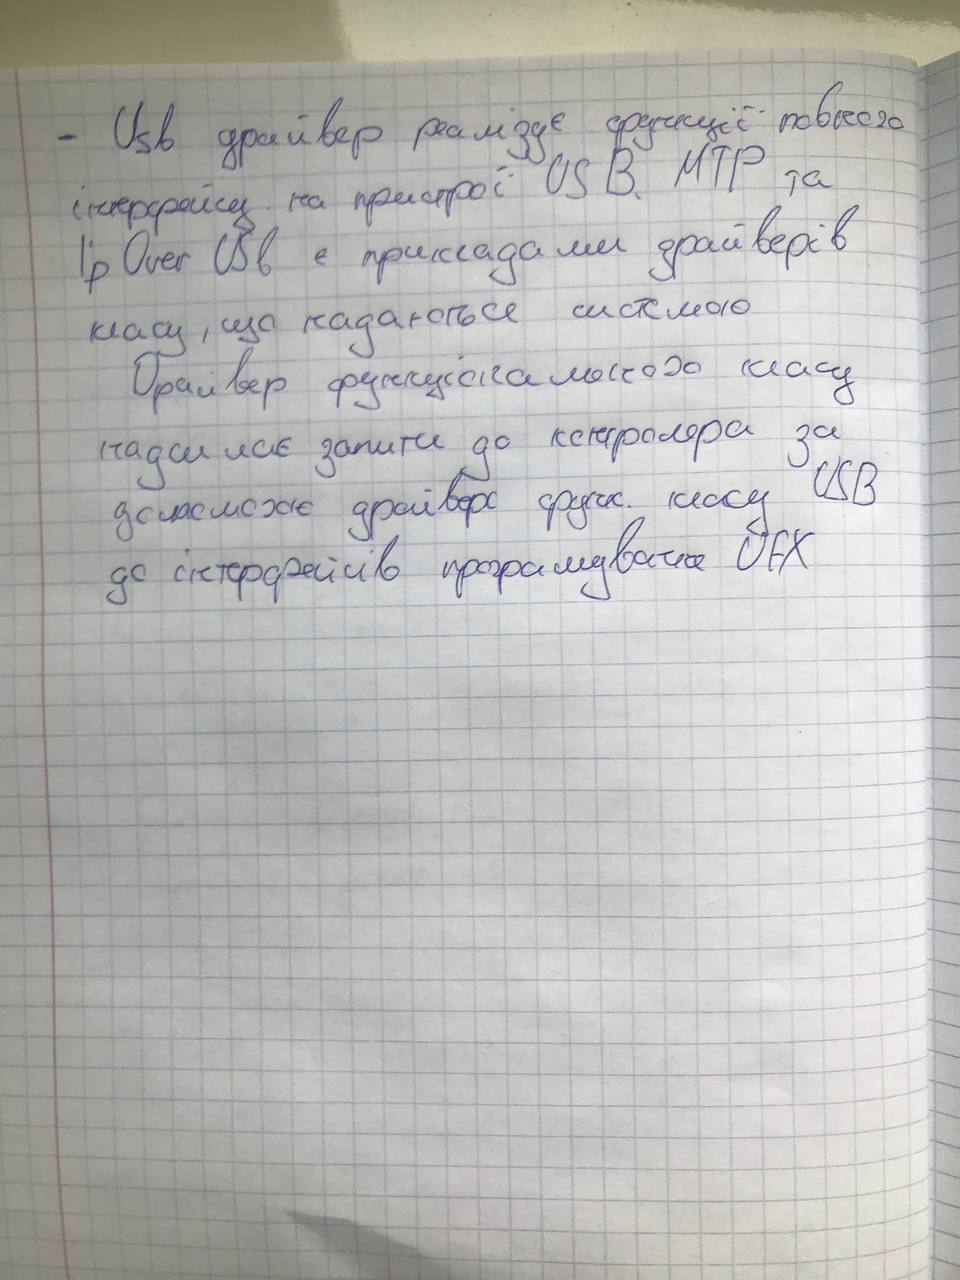 - Usb драйвер реалізує функції повного
інтерфейсу на пристрої USB. MTP та
Ip Over USb є прикладами драйверів
класу, що надаються системою
Драйвер функціонального класу
надсилає запити до контролера за
допомогою драйвера функ. класу USB
до інтерфейсів програмування UFX